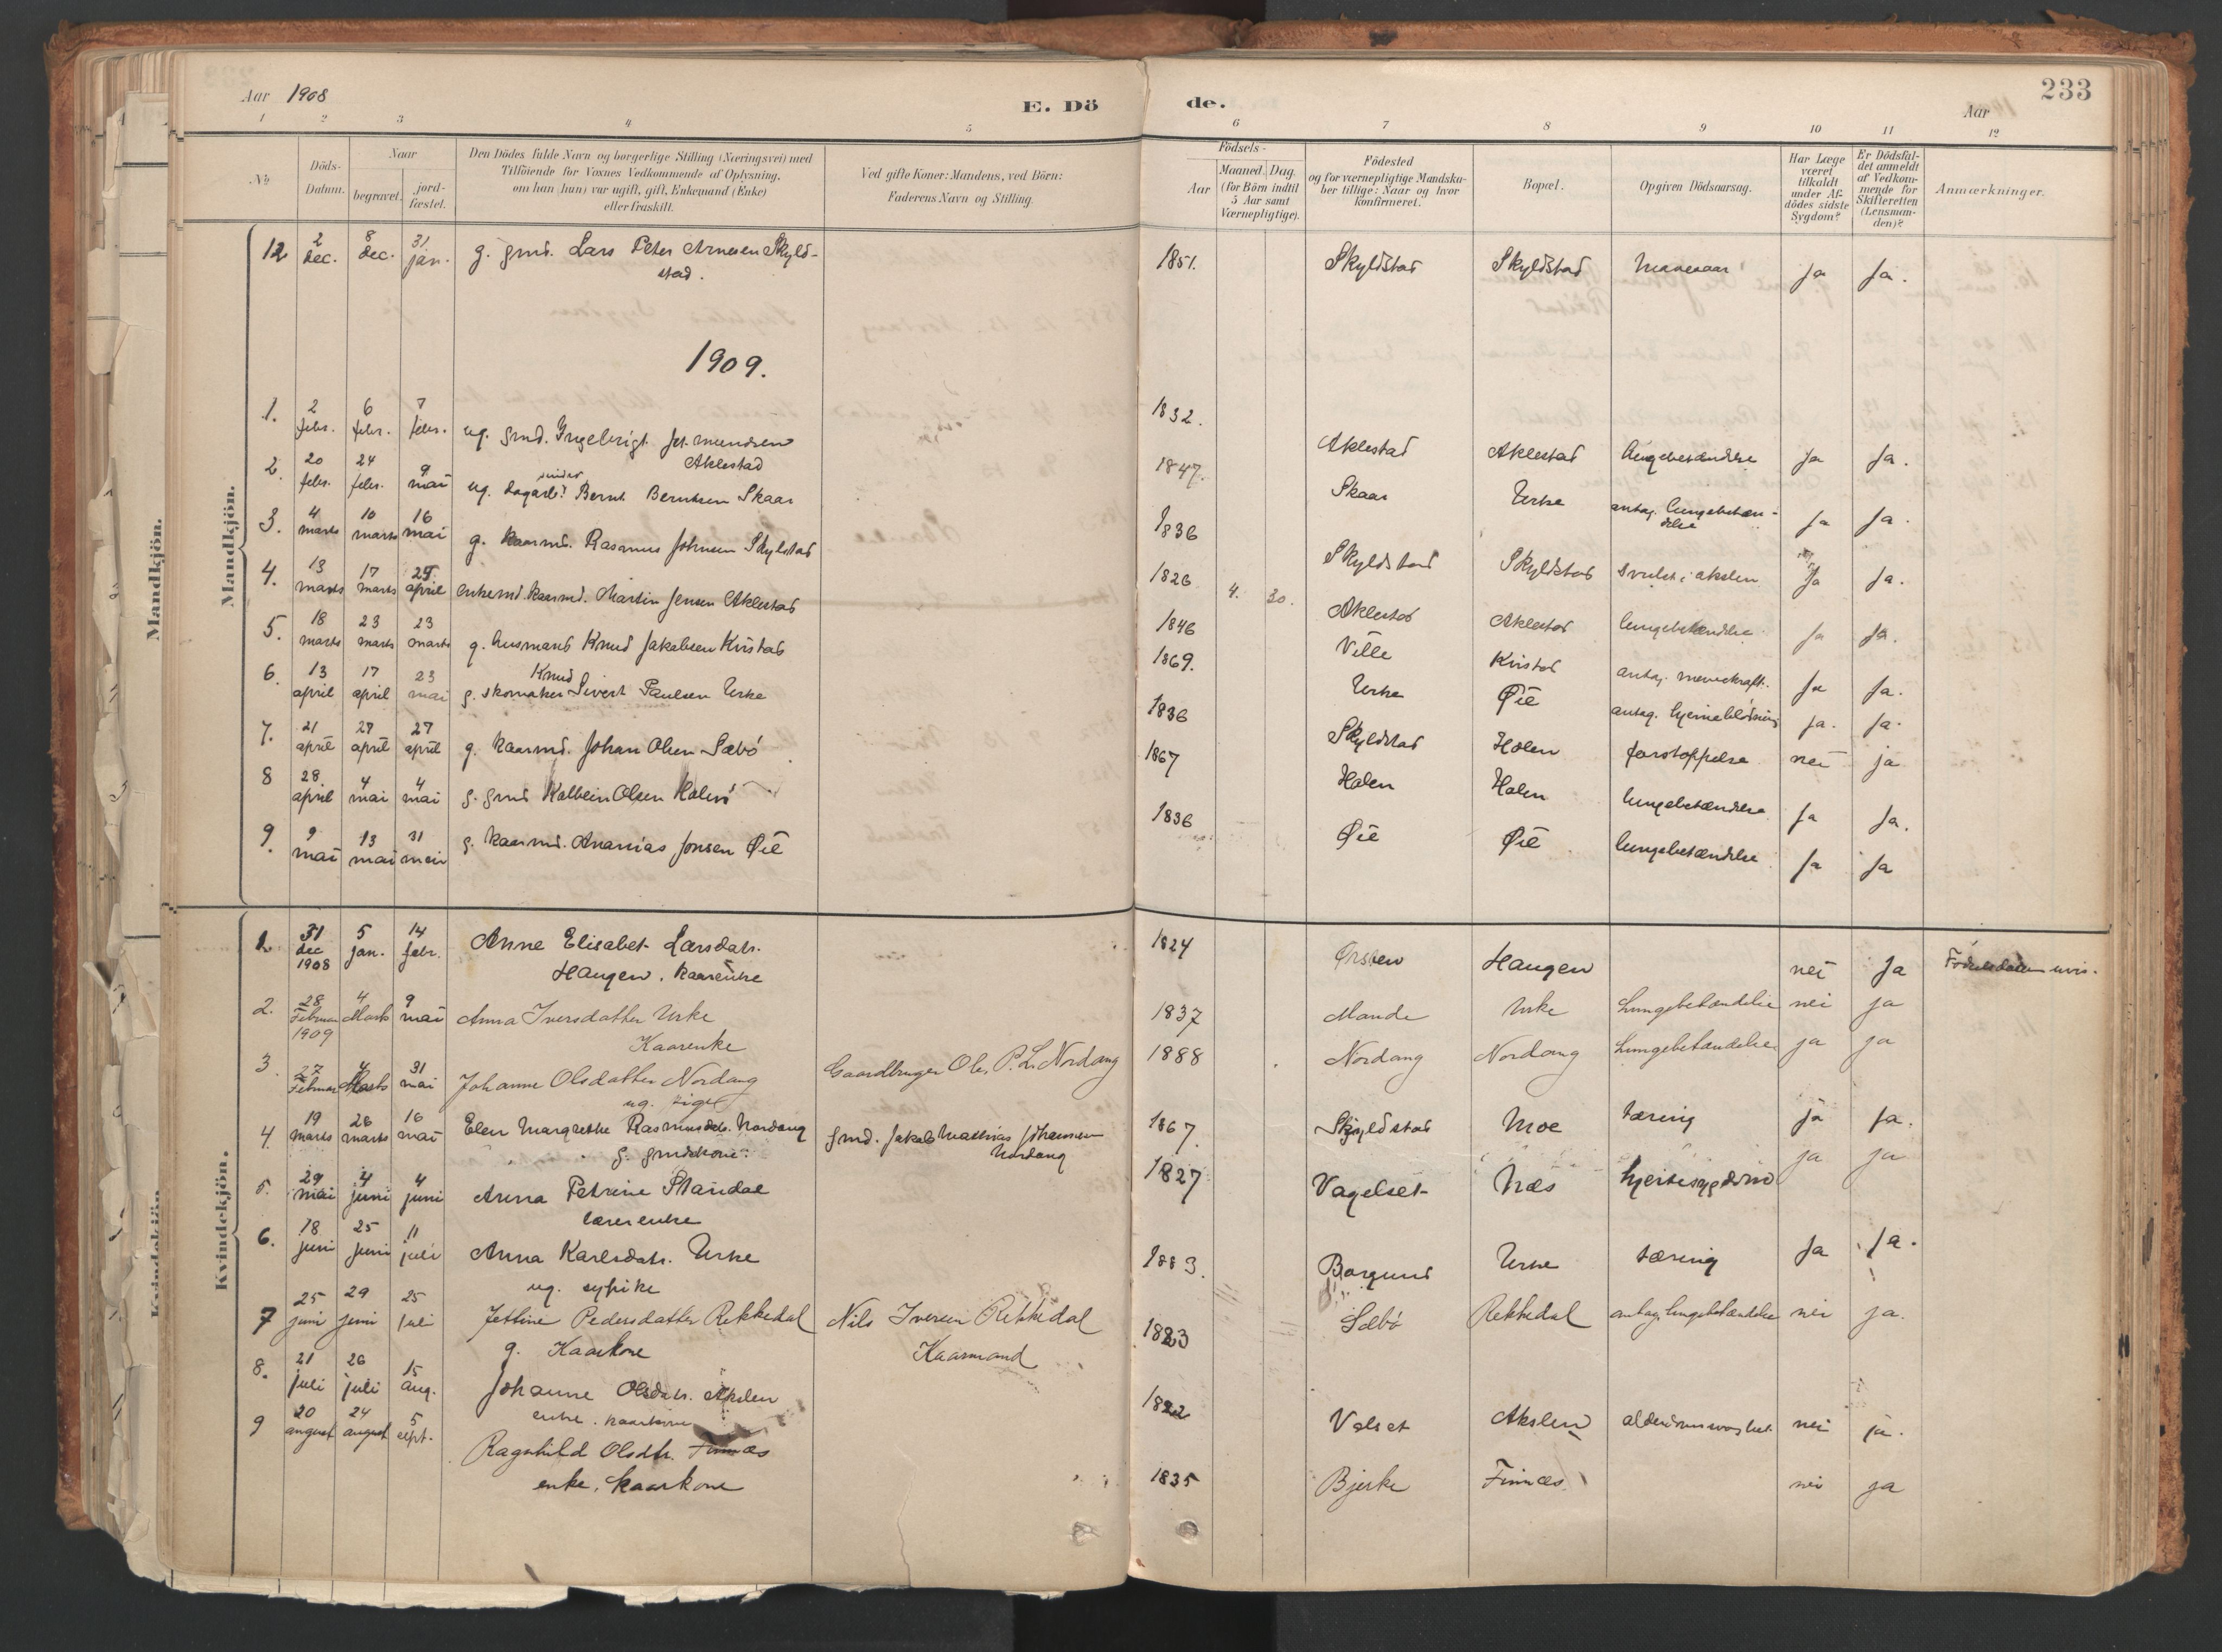 Aar 1908
E. Dö
de.
Aar
233
1 2 3 4 5 6 7 8 9 10 11 12
№
Döds-Datum.
Naar
begravet.
jord-fæstet.
Den Dödes fulde Navn og borgerlige Stilling (Næringsvei) med
Tilföiende for Voxnes Vedkommende af Oplysning,
om han (hun) var ugift, gift, Enkemand (Enke)
eller fraskilt.
Ved gifte Koner: Mandens, ved Börn:
Faderens Navn og Stilling.
Födsels-
Aar
Maaned. Dag.
(for Börn indtil
5 Aar samt
Værnepligtige).
Födested
og for værnepligtige Mandska-
ber tillige: Naar og hvor
konfirmeret.
Bopæl.
Opgiven Dödsaarsag.
Har Læge
været
tilkaldt
under Af-
dödes sidste
Sygdom?
Er Dödsfal-
det anmeldt
af Vedkom-
mende for
Skifteretten
(Lensman-
den)?
Anmærkninger.
Mandkjön.
Mandkjön.
12 2 dec. 8 dec. 31 jan. g. grmd. Lars Peter Arnesen Skyld-
stad. 1851. Skyldstad Skyldstad Mavesaar ja Ja.
1909.
1. 2 febr. 6 febr. 7 febr. ug. grmd. Ingebrigt Jet.mundsen
Aklestad 1832. Aklestad Aklestad lungebetændelse ja Ja.
2. 20 febr. 24 febr. 9 mai ug. dagarb. Bernt Berntsen Skaar 1847. Skaar Urke antag. lungebetæn-
delse ja Ja.
3. 4 marts 10 marts 16 mai g. kaarmd. Rasmus Johnsen Skylstad 1836 Skyldstad Skyldstad svulst i akslen Ja Ja.
4. 13 marts 17 marts 25 april enkemd. kaarmd. Martin Jensen Aklestad 1826 4. 30. Aklestad Aklestad lungebetændelse ja Ja.
5. 18 marts 23 marts 23 marts g. husmand Knud Jakobsen Kvistad 1846 Velle Kvistad antag. mavekraft. Ja Ja.
6. 13 april 17 april 23 mai Knud
g. skomaker Sivert Paulsen Urke 1869. Urke Øie antag. hjerneblödning ja. Ja.
7. 21 april 27 april 27 april g. kaarmd. Johan Olsen Sæbö 1836 Skyldstad Holen forstoppelse nei ja
8 28 april 4 mai 4 mai g. grmd Kolbein Olsen Holen 1867 Holen Holen lungebetændelse Ja Ja.
9. 9 mai 13 mai 31 mai g. kaarmd. Ananias Jonsen Øie 1836 Øie Øie lungebetændelse Ja Ja
Kvindekjön.
Kvindekjön
1. 31 dec 1908 5 jan. 14 febr. Anne Elisabet Larsdatr.
Haugen. kaarenke 1824 Ørsten Haugen nei Ja Födselsdatum uvis.
2. 28 Februar 1909 4 Marts 9 mai Anna Iversdatter Urke
Kaarenke 1837 Mande Urke Lungebetændelse nei ja
3. 27 Februar 4 Marts 31 mai Johanne Olsdatter Nordang
ug. pige Gaardbruger Ole P. L. Nordang 1888 Nordang Nordang Lungebetændelse ja ja
4. 19 marts 26 marts 16 mai Elen Margrethe Rasmusdatr. Nordang
g. grmdskone. grmd. Jakob Mathias Johannesen
Nordang 1867. Skyldstad Moe tæring ja Ja.
5. 29 mai 4 juni 4 juni Anna Petrine Standal
lærerenke 1827 Vagelset Næs hjertesygdom ja ja
6. 18 juni 25 juni 11 juli Anna Karlsdatr. Urke
ug. sypike 1883. Borgund Urke tæring Ja Ja.
7 25 juni 29 juni 25 juli Jettine Pedersdatter Rekkedal
g. Kaarkone Nils Iversen Rekkedal
Kaarmand 1823 Sæbö Rekkedal antag. lungebetændelse nei ja.
8. 21 juli 26 juli 15 aug. Johanne Olsdatr. Akslen
enke. kaarkone 1822 Velset Akslen alderdomssvaghet nei ja.
9 20 august 24 august 5 sept. Ragnhild Olsdtr. Finnæs
enke, kaarkone 1835 Bjerke Finnæs nei ja